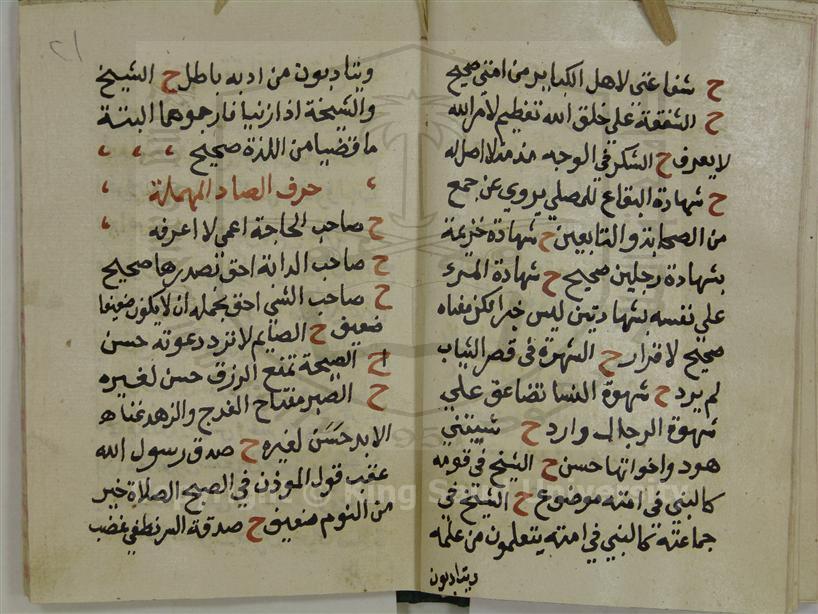 ح شفاعتى لاهل الكباير من امتى صحيح
ح الشفقة على خلق الله تعظيم لامر الله
لا يعرف ح الشكر فى الوجه مذمة لا اصل له
ح شهادة البقاع للمصلى يروي عن جمع
من الصحابة والتابعين ح شهادة خزيمة
بشهادة رجلين صحيح ح شهادة المرء
على نفسه بشهادتين ليس خبرا لكن معناه
صحيح لاقرار ح الشهرة فى قصر الثياب
لم يرد ح شهوة النسا تضاعف على
شهوة الرجال وارد ح شيبتني
هود واخواتها حسن ح الشيخ فى قومه
كالنبي فى امته موضوع ح الشيخ فى
جماعته كالنبي في امته يتعلمون من علمه
ويتادبون
٢١
ويتادبون من ادبه باطل ح الشيخ
والشيخة اذا زنيا فارجموهما البتة
ما قضيا من اللذة صحيح
حرف الصاد المهملة
ح صاحب الحاجة اعمى لا اعرفه
ح صاحب الدابة احق بصدرها صحيح
ح صاحب الشئ احق بحمله ان لا يكون ضعيفا
ضعيف ح الصايم لا ترد دعوته حسن
ح الصبحة تمنع الرزق حسن لغيره
ح الصبر مفتاح الفرج والزهد غناء
الابد حسن لغيره ح صدق رسول الله
عقب قول الموذن في الصبح الصلاة خير
من النوم ضعيف ح صدقة السر تطفي غضب
Copyright © King Saud University